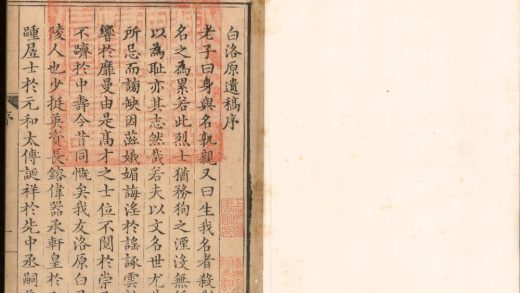 白洛原遺稿序
老子曰身與名孰親又曰生我名者殺
名之為累若此烈士猶務狥之湮沒無
以為耻亦其志然哉若夫以文名世尤
所忌而謫缺因茲娥媚誨淫於謠諑雲
響於靡曼由是髙才之士位不闋於崇
不躋於中壽今昔同慨矣我友洛原白
陵人也少挺英資長鎔偉器承軒皇於
踵居士於元和太傅誕祥於先中丞嗣
序